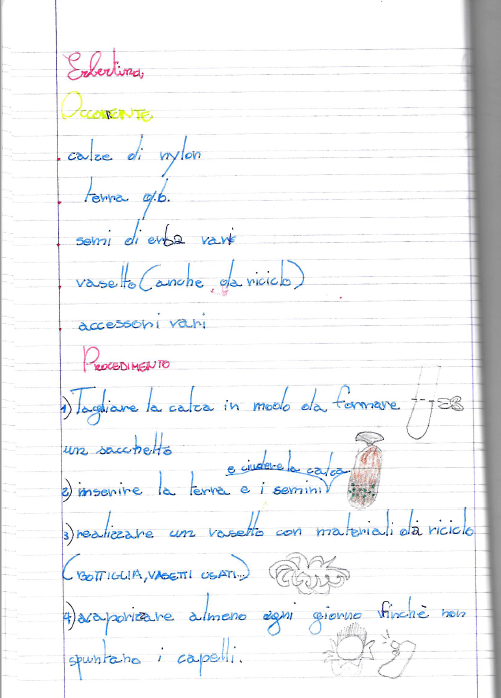 Erbertina
OCCORRENTE
calze di nylon
terra q.b.
semi di erba vari
vasetto (anche da riciclo)
accessori vari
PROCEDIMENTO
1) Tagliare la calza in modo da formare
un sacchetto
e chiudere la calza
2) inserire la terra e i semini
3) realizzare un vasetto con materiali da riciclo
(BOTTIGLIA, VASETTI USATI...)
4) vaporizzare almeno ogni giorno finchè non
spuntano i capelli.